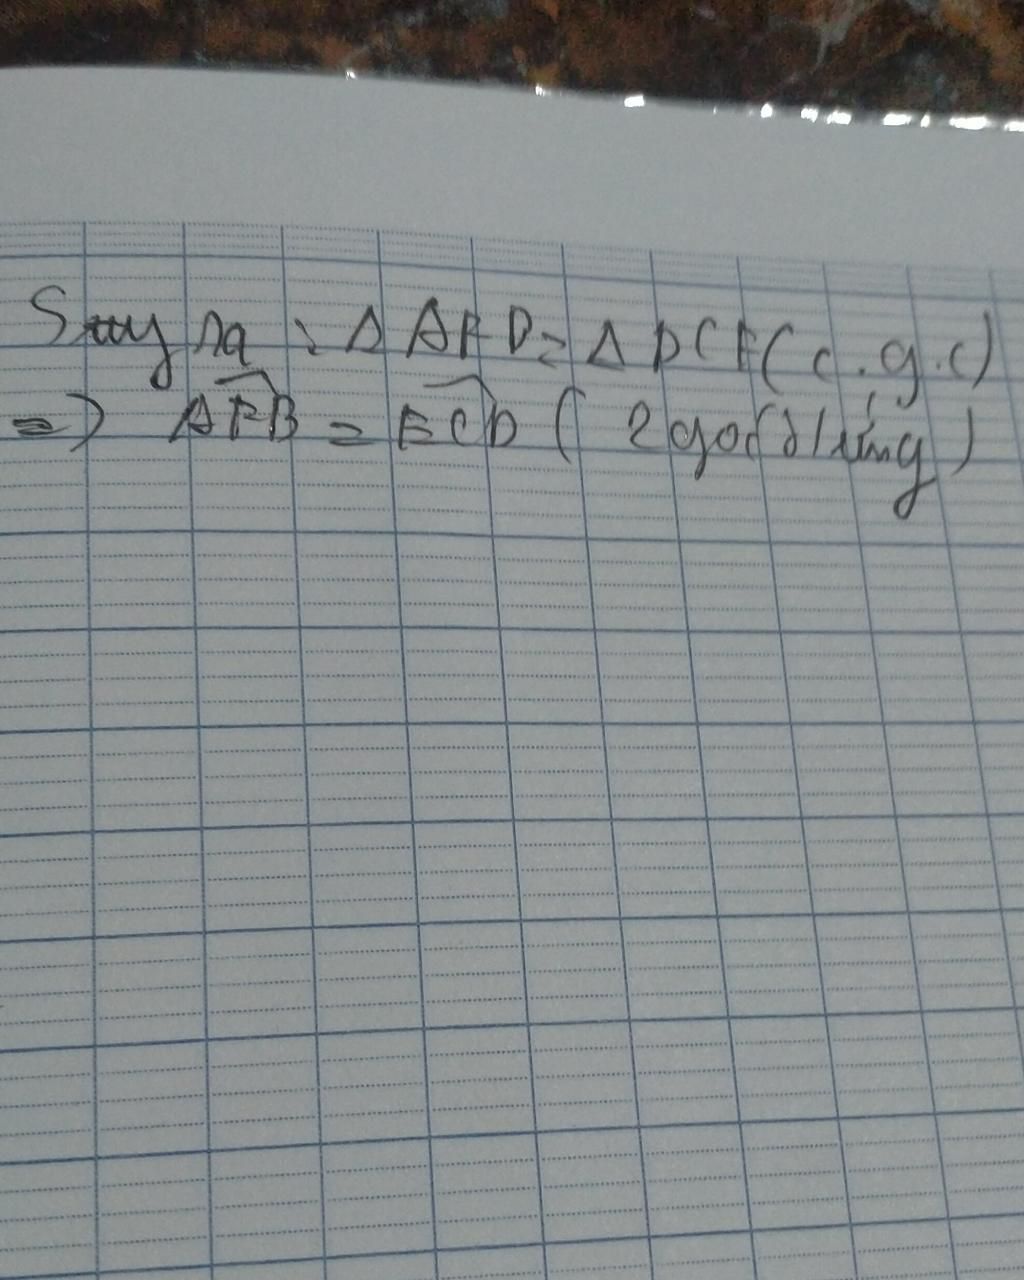 Suy ra : Δ AFD = Δ DCE (c.g.c)
=> AFB = ECD ( 2 góc t/ứng )